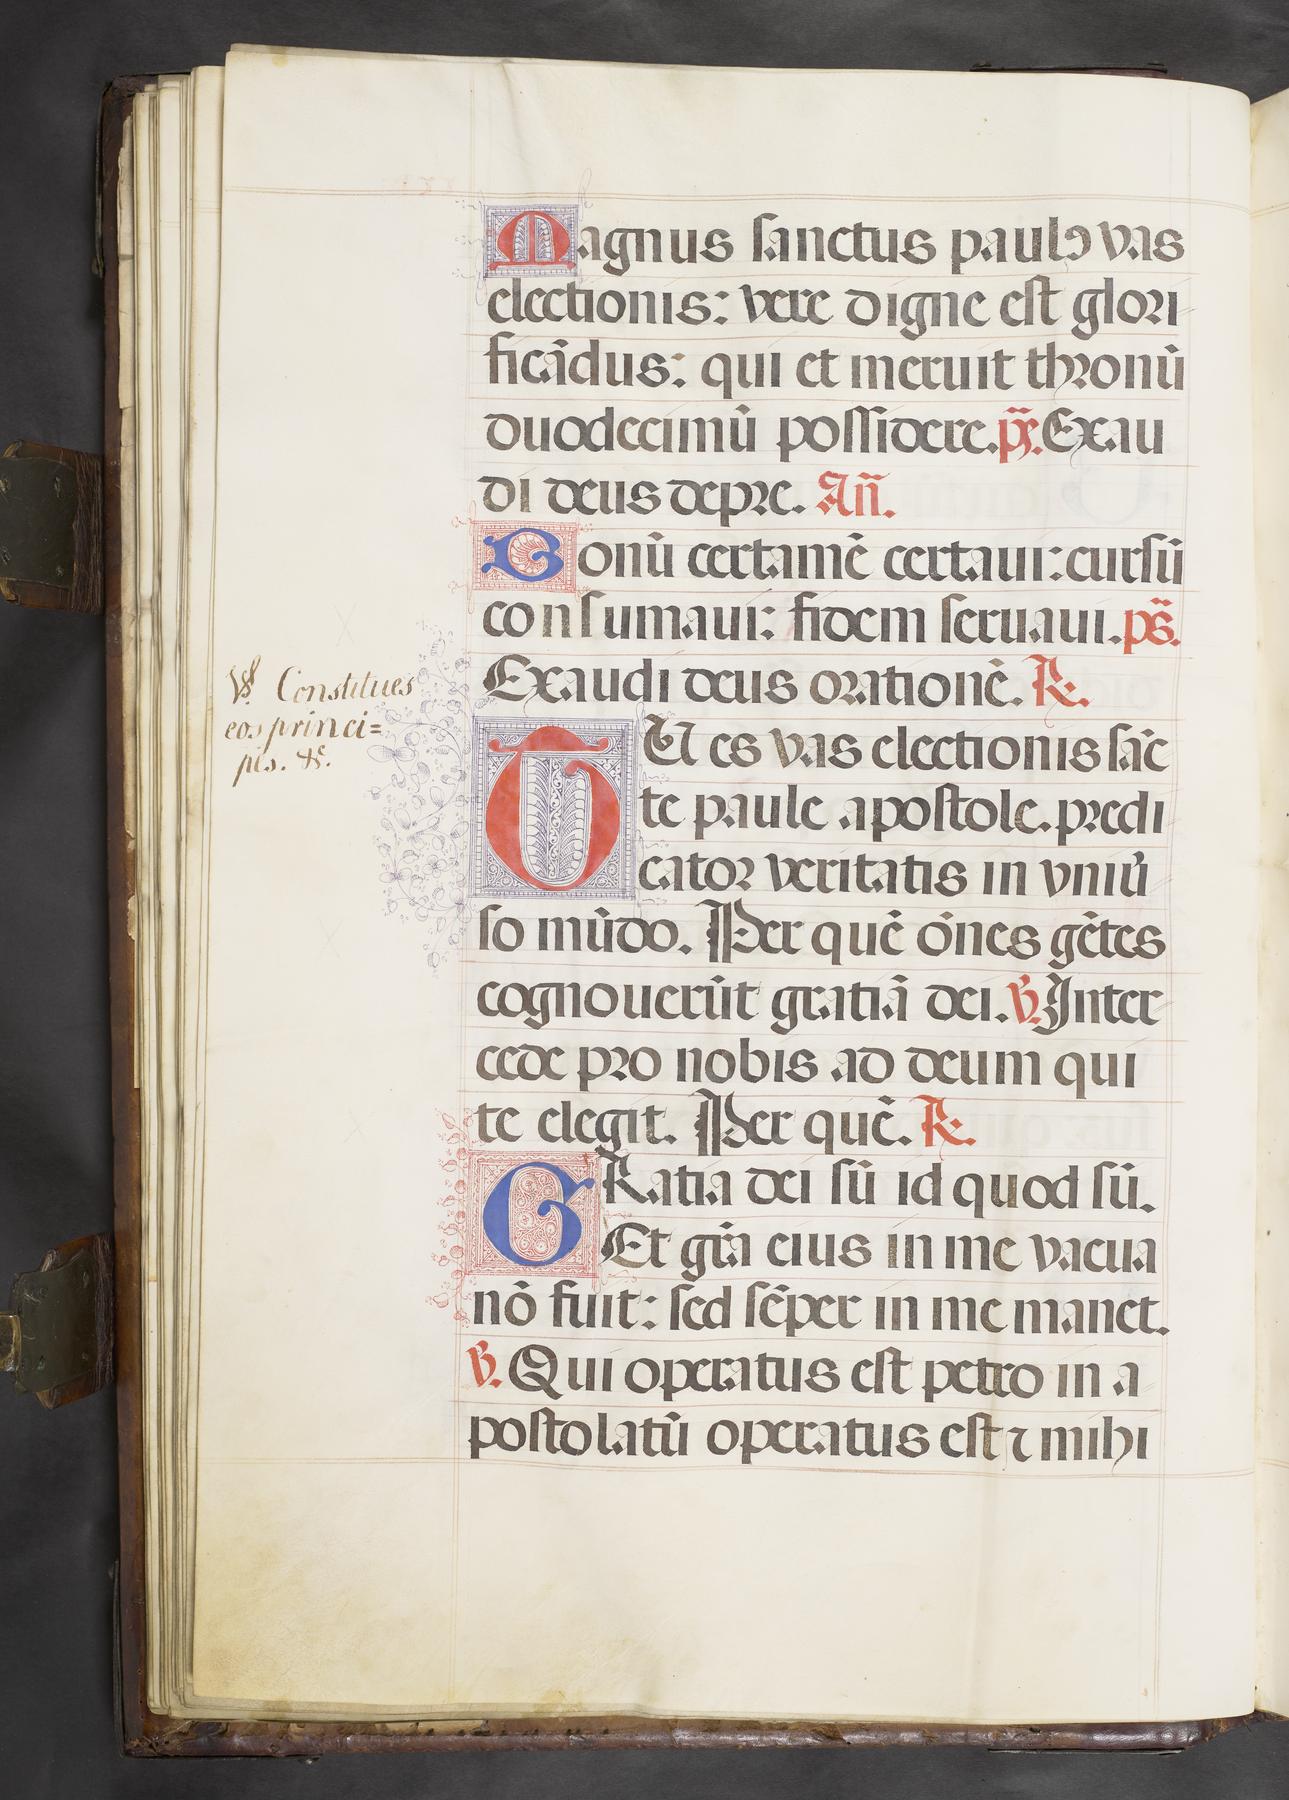 Magnus sanctus paulꝰ vas
electionis: vere digne est glori
ficādus: qui et meruit thronū
duodecimū possidere. ps̄. Exau
di deus depre. An̄.
Bonū certamē certaui: cursū
consumaui: fidem seruaui. ps̄.
Exaudi deus orationē. ℟.
V̸. Constitues
eos princi=
pes. &c.
TU es vas electionis sāc
te paule apostole. predi
cator veritatis in vniū
so mūdo. Per quē ōnes gētes
cognouerūt gratiā dei. ℣. Inter
cede pro nobis ad deum qui
te elegit. Per quē. ℟.
GRatia dei sū id quod sū.
Et grā eius in me vacua
nō fuit: sed sēper in me manet.
℣. Qui operatus est petro in a
postolatū operatus est ⁊ mihi